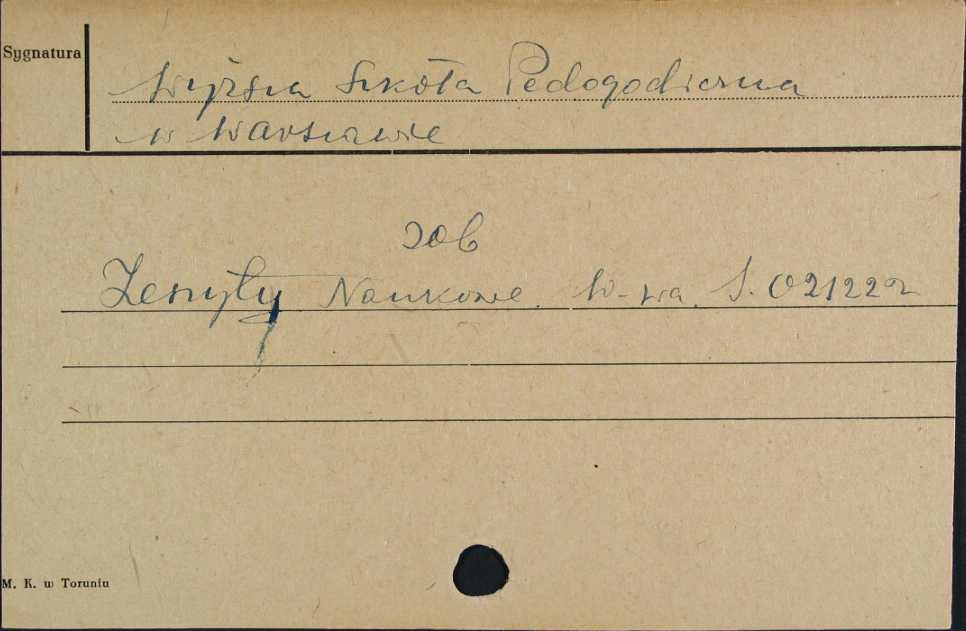 Sygnatura
Wyższa Szkoła Pedagogiczna
w Warszawie
zob
Zeszyty Naukowe. W-wa. S. 021222
M. K. w Toruniu